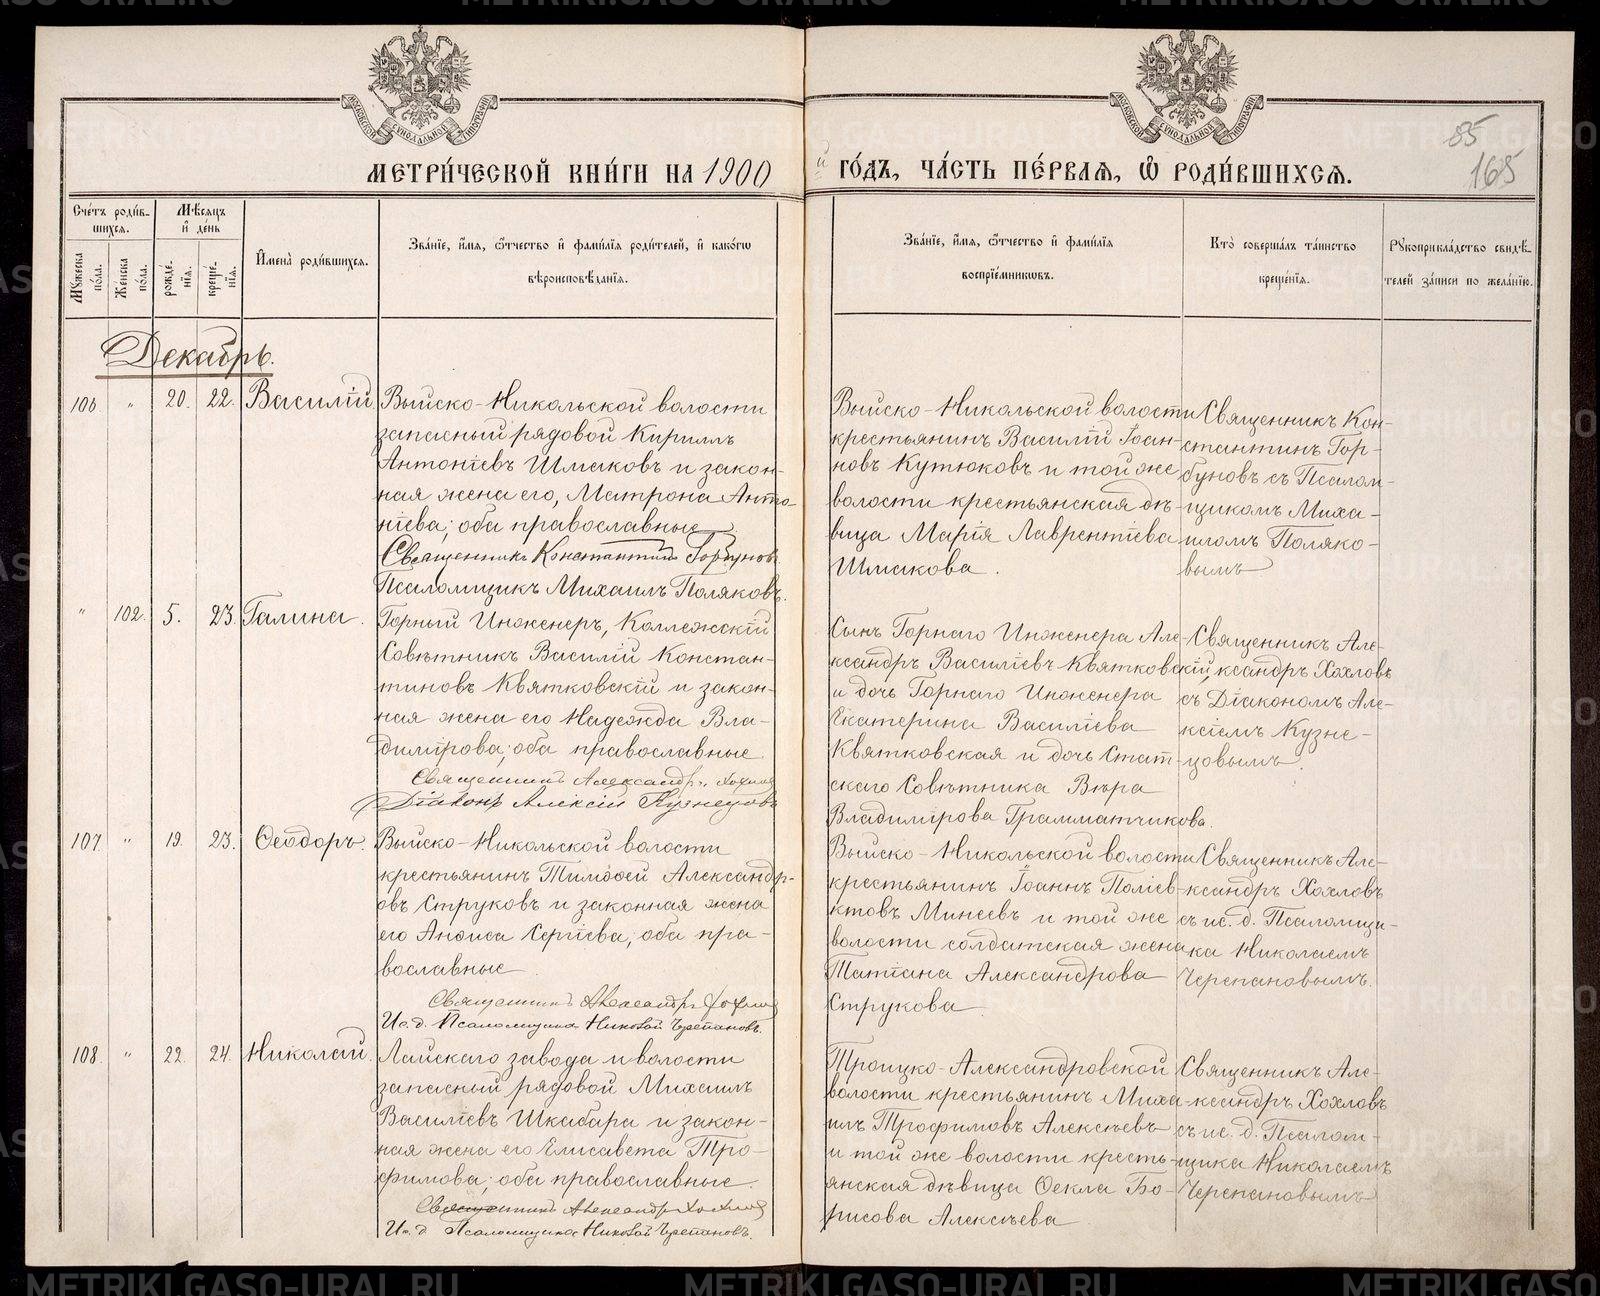 МЕТРИЧЕСКОЙ КНИГИ НА 1900
й ГОДЪ, ЧАСТЬ ПЕРВАЯ, Ѡ РОДИВШИХСЯ.
85
165
Счетъ родив-
шихся.
Мужеска
пола.
Женска
пола.
Мѣсяцъ
и день
рожде-
нія.
креще-
нія.
Имена родившихся.
Званіе, имя, ѿчество и фамилія родителей, и какогѡ
вѣроисповѣданія.
Званіе, имя, ѿчество и фамилія
воспріемникѡвъ.
Кто совершалъ таинство
крещенія.
Рукоприкладство свидѣ-
телей записи по желанію.
Декабрь.
106. " 20. 22. Василій
Выйско-Никольской волости
запасный рядовой Кириллъ
Антоніевъ Шмаковъ и закон-
ная жена его, Матрона Анто-
ніева; оба православные
Священникъ Константинъ Горбуновъ
Псаломщикъ Михаилъ Поляковъ.
Выйско-Никольской волости
крестьянинъ Василій Іоан-
новъ Кутюковъ и той же
волости крестьянская дѣ-
вица Марія Лаврентіева
Шмакова.
Священникъ Кон-
стантинъ Гор-
буновъ съ Псалом-
щикомъ Миха-
иломъ Поляко-
вымъ
" 102. 5. 23. Галина.
Горный Инженеръ, Коллежскій
Совѣтникъ Василій Констан-
тиновъ Квятковскій и закон-
ная жена его Надежда Вла-
димірова; оба православные
Священникъ Александръ Хохловъ
Діаконъ Алексій Кузнецовъ
Сынъ Горнаго Инженера Але-
ксандръ Василіевъ Квятковскій,
и дочь Горнаго Инженера
Екатерина Василіева
Квятковская и дочь Стат-
скаго Совѣтника Вѣра
Владимірова Грамматчикова.
Священникъ Але-
ксандръ Хохловъ
съ Діакономъ Але-
ксіемъ Кузне-
цовымъ.
107. " 19. 23. Ѳеодоръ.
Выйско-Никольской волости
крестьянинъ Тимоѳей Александр-
овъ Струковъ и законная жена
его Анѳиса Сергіева; оба пра-
вославные
Священникъ Александръ Хохловъ
И. д. Псаломщика Николай Черепановъ.
Выйско-Никольской волости
крестьянинъ Іоаннъ Поліев-
ктовъ Минеевъ и той же
волости солдатская жена
Татіана Александрова
Струкова
Священникъ Але-
ксандръ Хохловъ
съ ис. д. Псаломщи-
ка Николаемъ
Черепановымъ.
108. " 22. 24. Николай.
Лайскаго завода и волости
запасный рядовой Михаилъ
Василіевъ Шкабара и закон-
ная жена его Елисавета Тро-
фимова; оба православные.
Священникъ Александръ Хохловъ
И. д. Псаломщика Николай Черепановъ.
Троицко-Александровской
волости крестьянинъ Миха-
илъ Трофимовъ Алексѣевъ
и той же волости кресть-
янская дѣвица Ѳекла Бо-
рисова Алексѣева
Священникъ Але-
ксандръ Хохловъ
съ ис. д. Псалом-
щика Николаемъ
Черепановымъ
METRIKI.GASO-URAL.RU